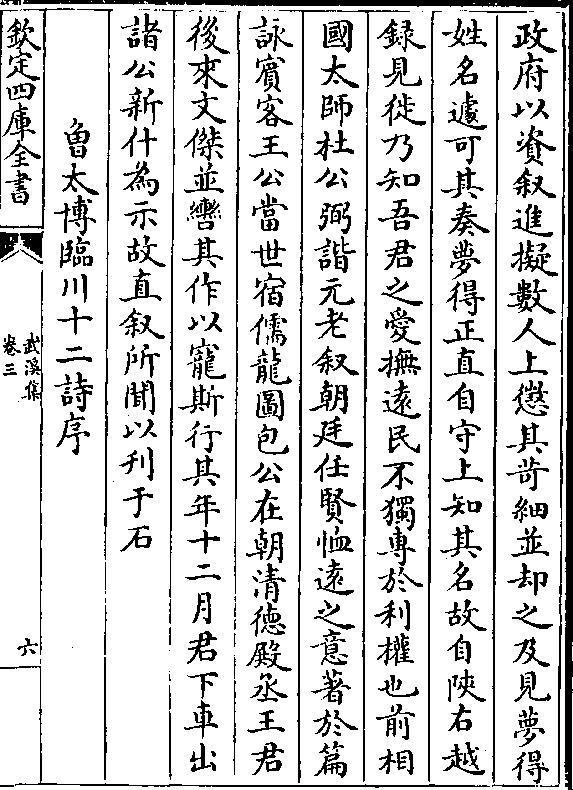 政府以資叙進擬數人上懲其苛細並却之及見夢得
姓名遽可其奏夢得正直自守上知其名故自陜右越
録見徙乃知吾君之愛撫遠民不獨專於利權也前相
國太師杜公弼諧元老叙朝廷任賢恤遠之意著於篇
詠賓客王公當世宿儒龍圖包公在朝清德殿丞王君
後來文傑並轡其作以寵斯行其年十二月君下車出
諸公新什為示故直叙所聞以刋于石
魯太博臨川十二詩序
欽定四庫全書
武溪集
卷三
六